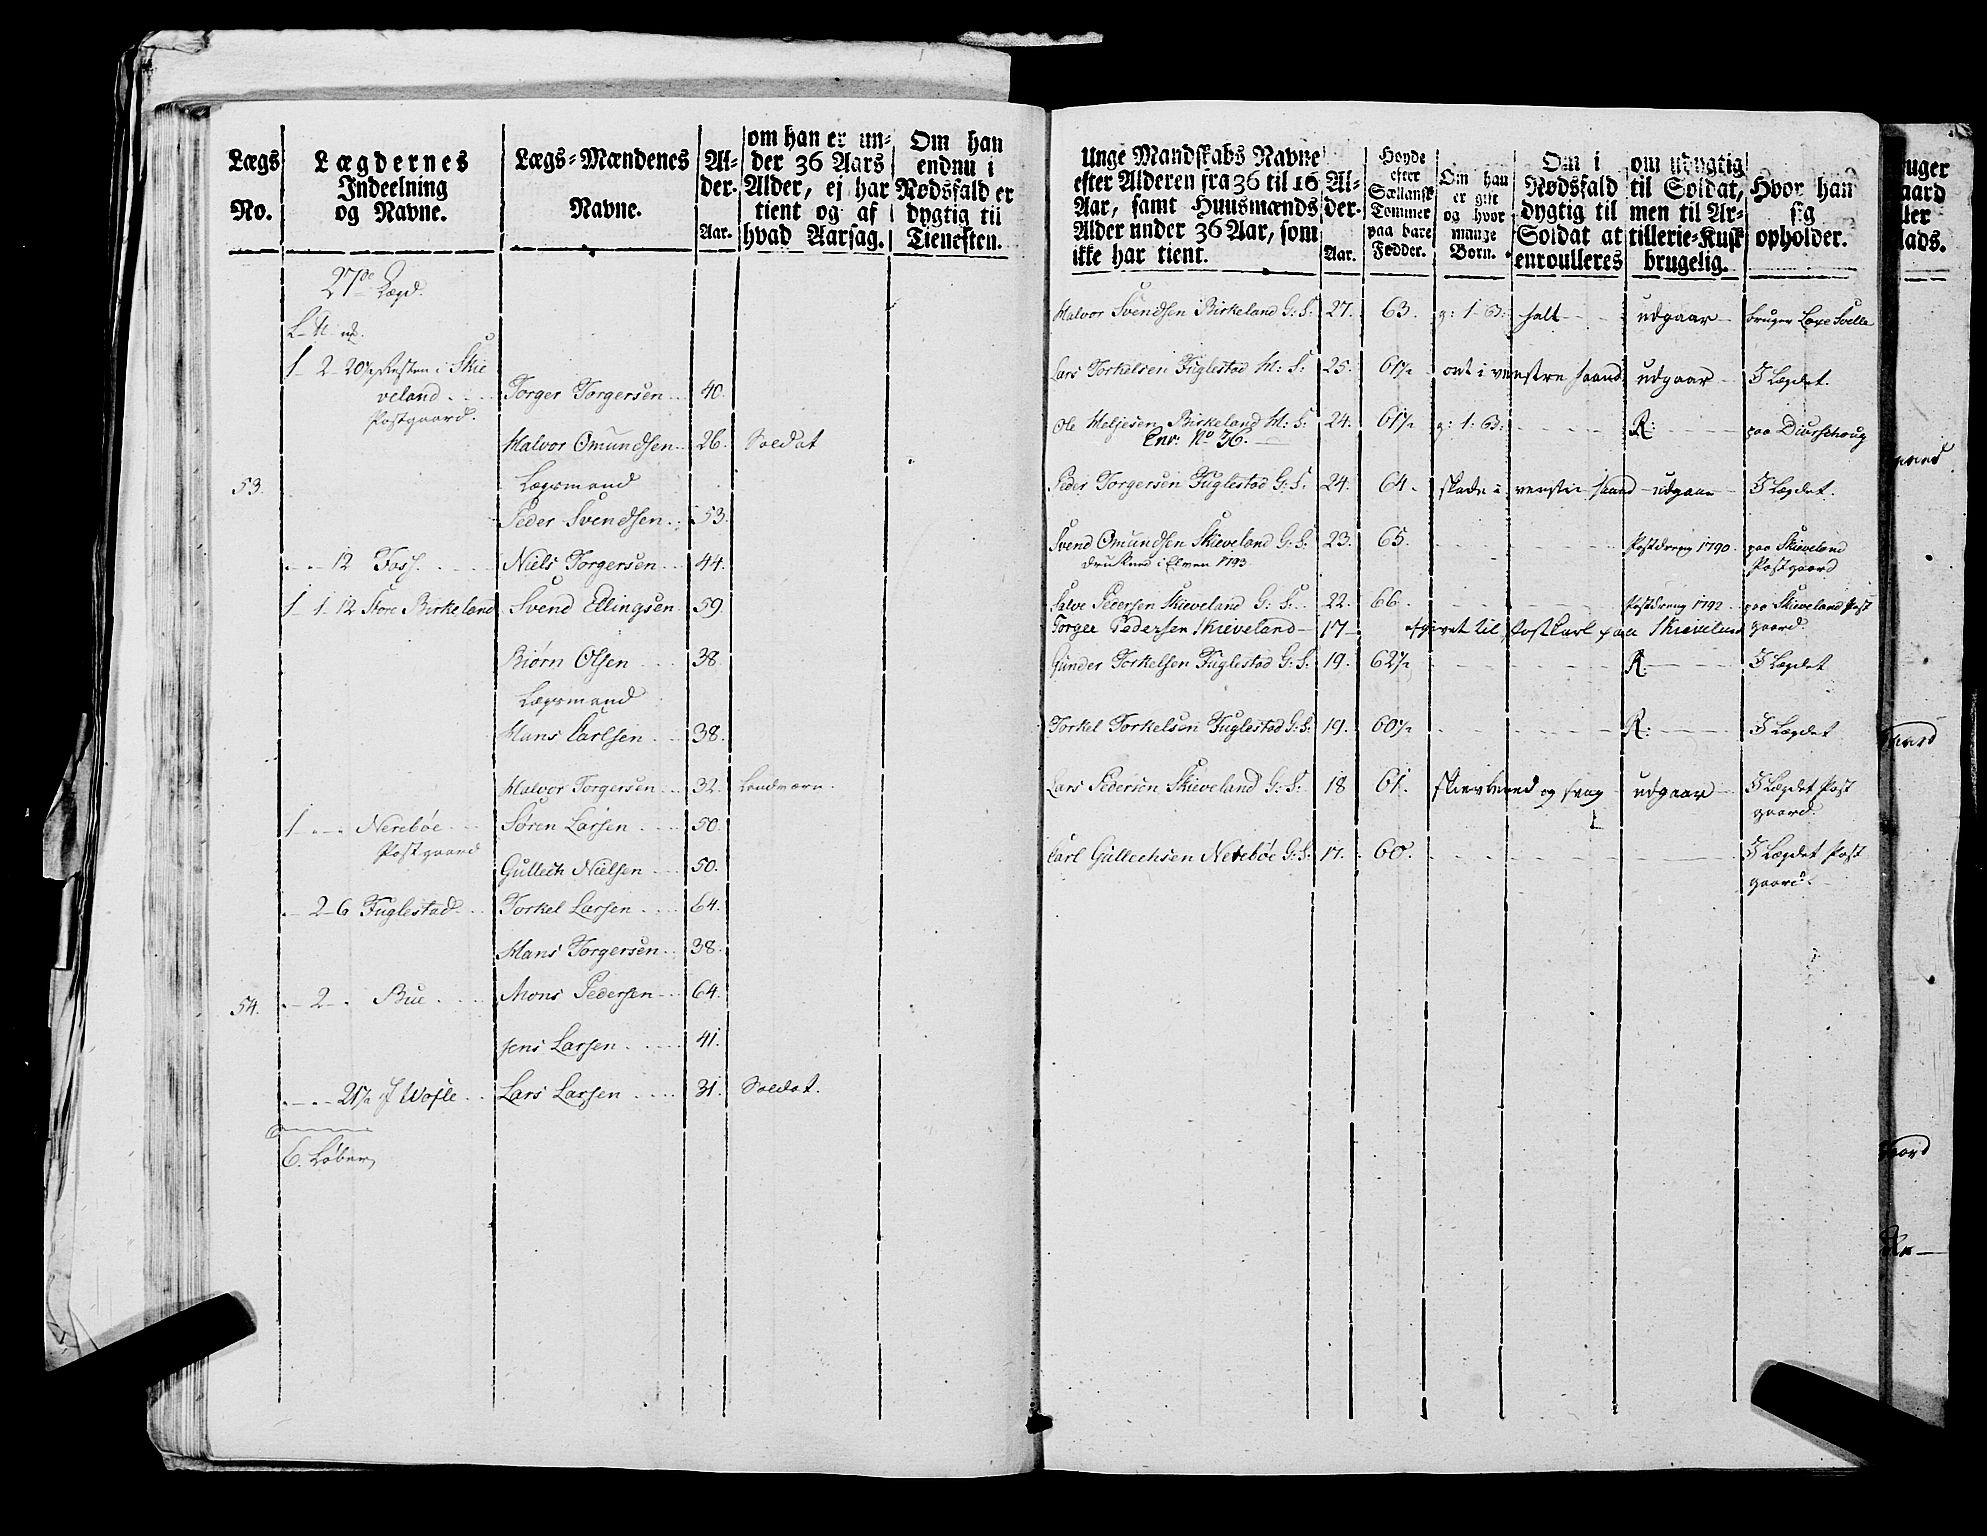 Lægs No.
Lægdernes Indeelning og Navne.
Lægs-Mændenes Navne.
Al-der. Aar.
om han er un-der 36 Aars Alder, ej har tient og af hvad Aarsag.
Om han endnu i Nødsfald er dygtig til Tienesten.
27de Lægd.
1 - 2 - 20 1/2 Resten i Skie
veland
Postgaard.
Torger Torgersen 40.
Halvor Omundsen 26. Soldat
53. Lægsmand
Peder Svendsen 53.
12 Foss. Niels Torgersen 44.
1 - 1 - 12 Store Birkeland Svend Ellingsen 59
Biørn Olsen 38
Lægsmand
Hans Carlsen 38.
Halvor Torgersen 32. Landværn.
1 Nerebøe Søren Larsen 50.
Postgaard
Gullech Nielsen 50.
2 - 6 Fuglestad Torkel Larsen 64.
Hans Torgersen 38.
54. 2 Bue Mons Pedersen 64.
Jens Larsen 41.
21 1/2 Lars Larsen 31. Soldat.
6. Løber
Unge Mandskabs Navne efter Alderen fra 36 til 16 Aar, samt Huusmænds Alder under 36 Aar, som ikke har tient.
Al-der. Aar.
Høyde efter Sællansk Tommer paa bare Fødder.
Om han er gift og hvor mange Børn.
Om i Nødsfald dygtig til Soldat at enroulleres
om udygtig til Soldat, men til Ar-tillerie-Kusk brugelig.
Hvor han sig opholder.
Halvor Svendsen Birkeland G: S: 27. 63. g: 1 B: halt udgaar bruger
Lars Torkelsen Fuglestad H: S: 25. 61 1/2 ont i venstre Haand udgaar I Lægdet.
Ole Heljesen Birkeland H: S: 24. 61 1/2 g: 1: B: R: paa
Enr: No 36.
Peder Torgersen Fuglestad G: S. 24. 64. skade i venstre Haand udgaar I Lægdet.
Svend Omundsen Skieveland G: S. 23. 65. Postdreng 1790. paa Skieveland
druknet i Elven 1793 Postgaard
Salve Pedersen Skieveland G: S. 22. 66. Postdreng 1792 paa Skieveland Post
Torger Pedersen Skieveland 17 afgivet til Postkarl paa Skieveland gaard.
Gunder Torkelsen Fuglestad G: S. 19. 62 1/2 R: I Lægdet
Torkel Torkelsen Fuglestad G: S: 19. 60 1/2 R: I Lægdet
Lars Pedersen Skieveland G: S: 18 61. og svag udgaar I Lægdet Post
gaard.
Carl Gullechsen Nerebøe G: S. 17. 60. I Lægdet Post
gaard.